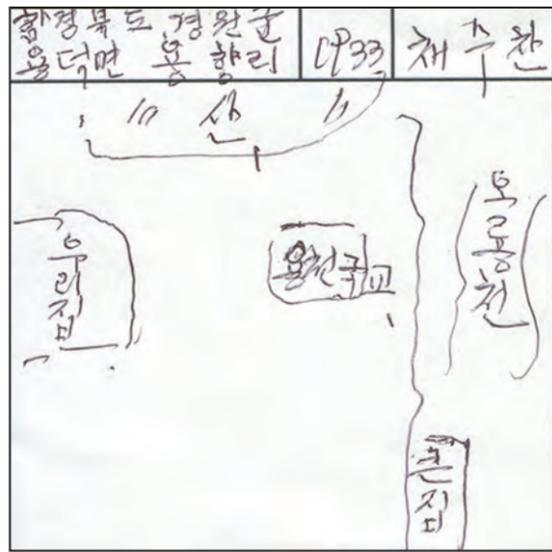 함경북도 경원군
용덕면 용향리
1933
채수찬
〃 산 〃
우리집
용천국교
오룡천
큰집